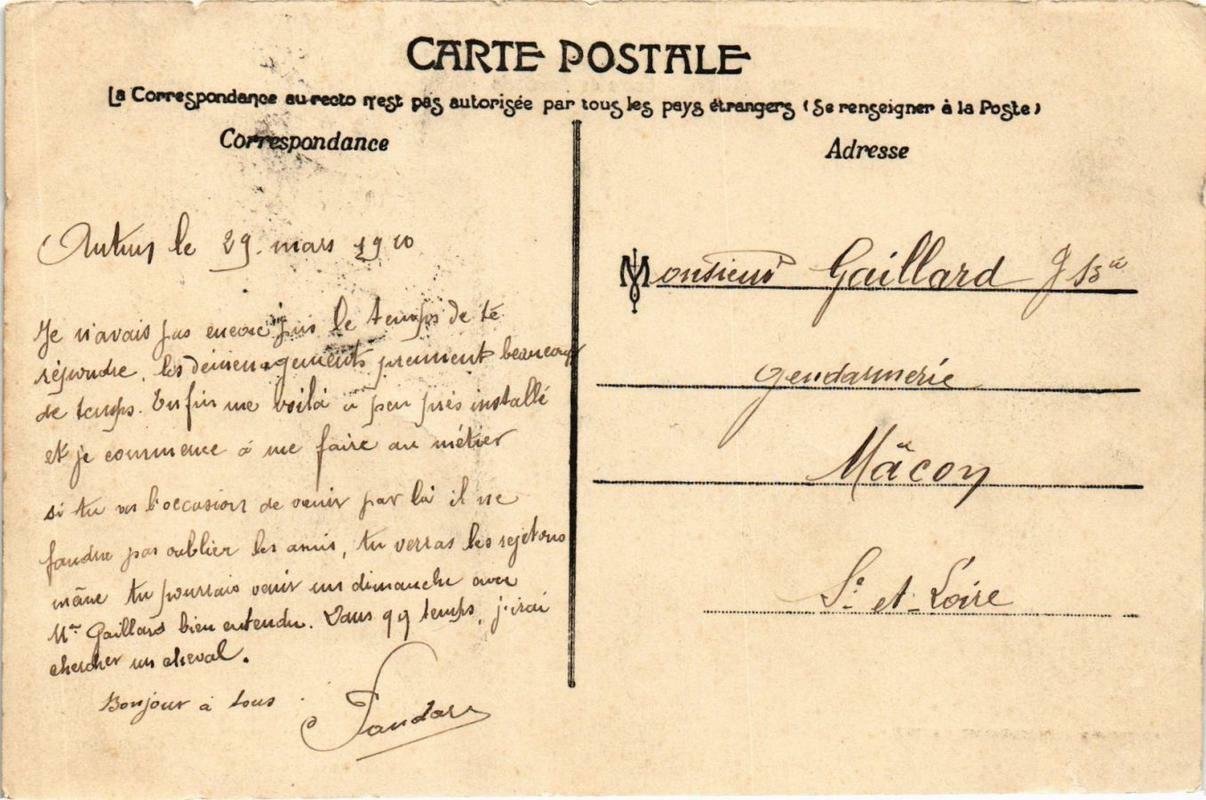 CARTE POSTALE
La Correspondance au recto n'est pas autorisée par tous les pays étrangers (Se renseigner à la Poste)
Correspondance
le 29 mars 1910
Je n'avais pas encore pris le temps de te
répondre. les déménagements prennent beaucoup
de temps. Enfin me voilà à peu près installé
et je commence à me faire au métier
si tu as l'occasion de venir par là il ne
faudra pas oublier les amis, tu verras les rejetons
même tu pourrais venir un dimanche avec
Me Gaillard bien entendu. Dans qq temps, j'irai
chercher un cheval.
Bonjour à tous
Adresse
Monsieur Gaillard
Gendarmerie
Mâcon
S. et Loire